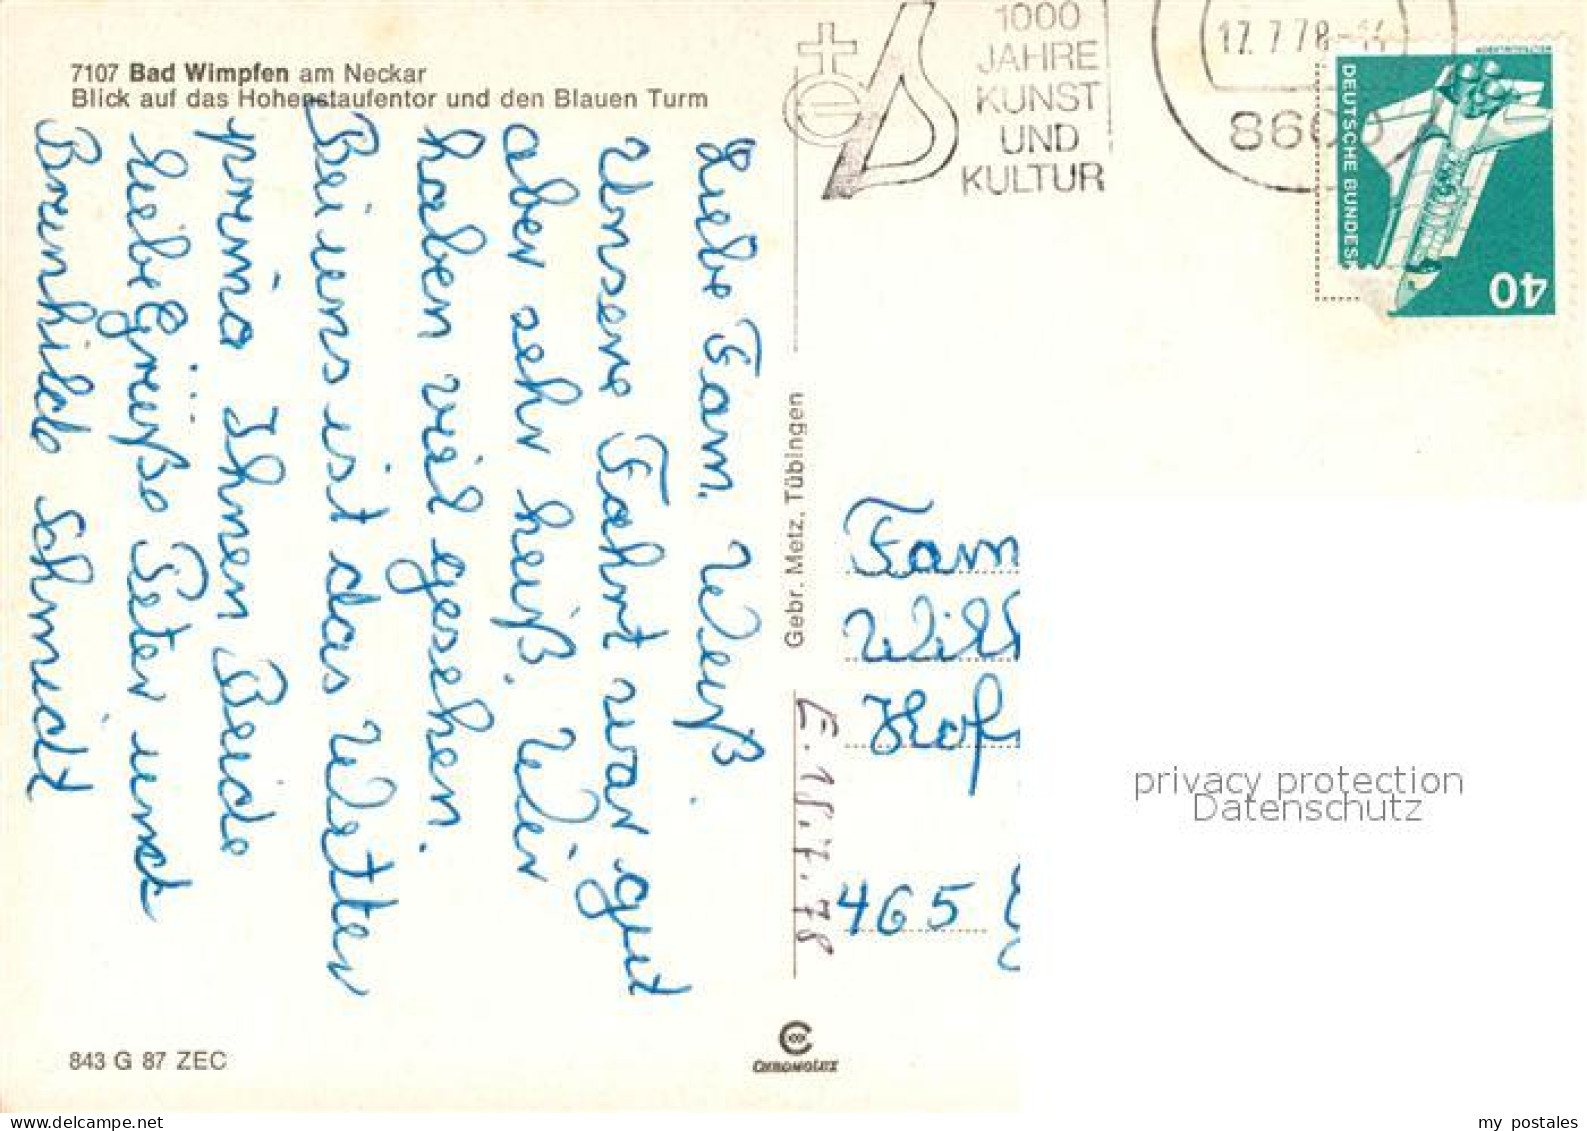 7107 Bad Wimpfen am Neckar
Blick auf das Hohenstaufentor und den Blauen Turm
1000
JAHRE
KUNST
UND
KULTUR
17.7.78-14
8600
DEUTSCHE BUNDESP
40
Liebe Fam. Weiß.
Unsere Fahrt war gut
aber sehr heiß. Wir
haben viel gesehen.
Bei uns ist das Wetter
prima Ihnen Beide
liebe Grüße Peter und
Brunhilde Schmidt
Gebr. Metz, Tübingen
E. 18.7.78
Fam
Wil
Hof
465
privacy protection
Datenschutz
843 G 87 ZEC
CHROMOLUX
www.delcampe.net
my_postales